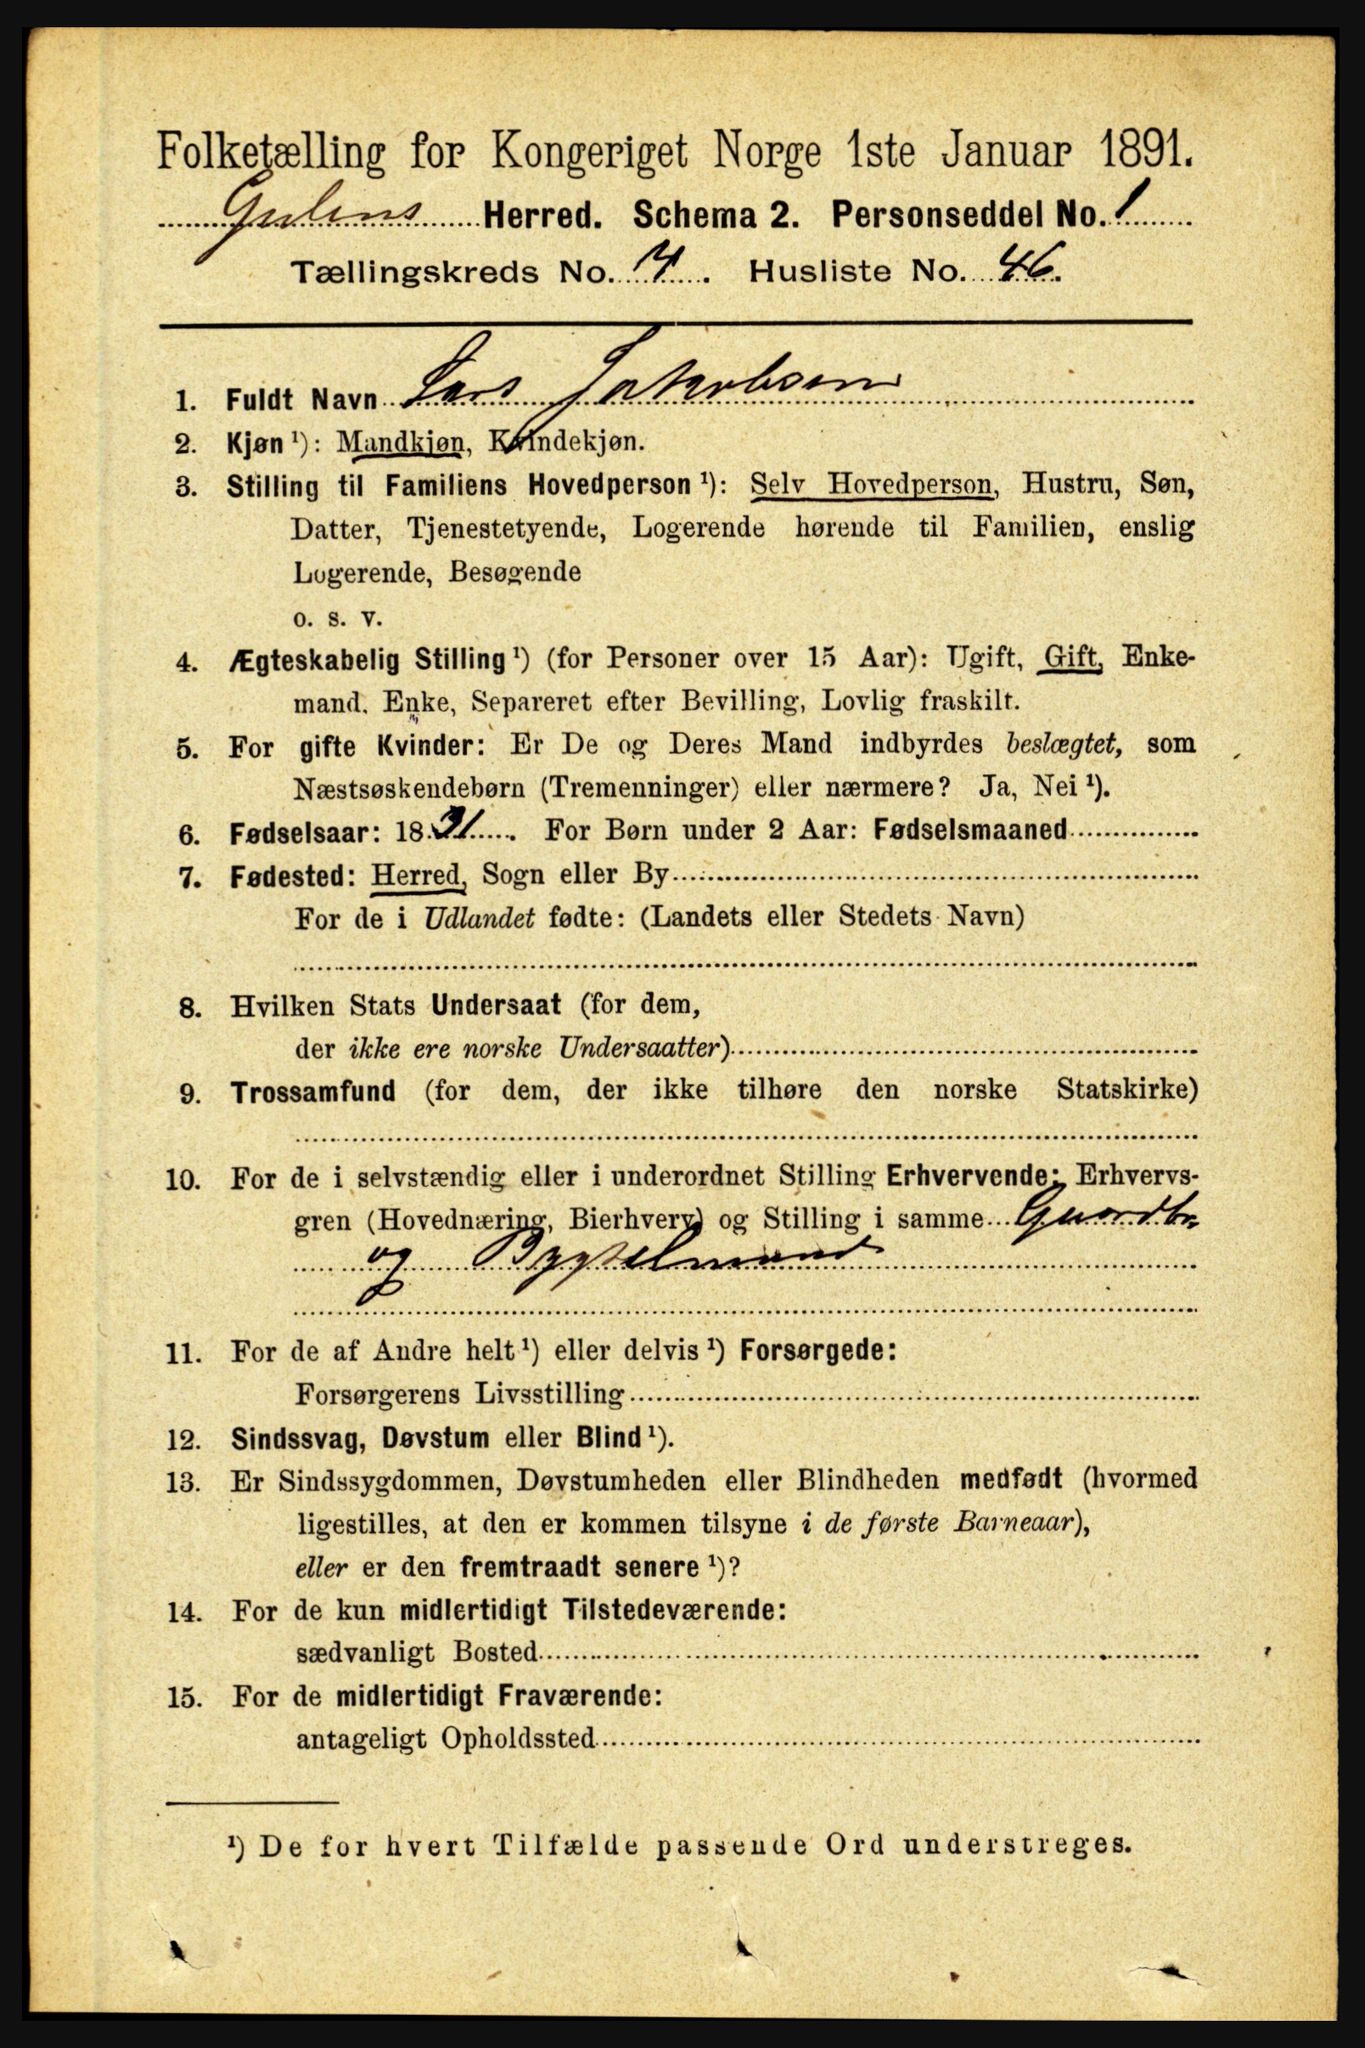 Folketælling for Kongeriget Norge 1ste Januar 1891.
Gulens Herred. Schema 2. Personseddel No. 1
Tællingskreds No. 7. Husliste No. 46.
1. Fuldt Navn Lars Jakobsen
2. Kjøn ¹): Mandkjøn, Kvindekjøn.
3. Stilling til Familiens Hovedperson ¹): Selv Hovedperson, Hustru, Søn,
Datter, Tjenestetyende, Logerende hørende til Familien, enslig
Logerende, Besøgende
o. s. v.
4. Ægteskabelig Stilling ¹) (for Personer over 15 Aar): Ugift, Gift, Enke-
mand, Enke, Separeret efter Bevilling, Lovlig fraskilt.
5. For gifte Kvinder: Er De og Deres Mand indbyrdes beslægtet, som
Næstsøskendebørn (Tremenninger) eller nærmere? Ja, Nei ¹).
6. Fødselsaar: 1831. For Børn under 2 Aar: Fødselsmaaned
7. Fødested: Herred, Sogn eller By
For de i Udlandet fødte: (Landets eller Stedets Navn)
8. Hvilken Stats Undersaat (for dem,
der ikke ere norske Undersaatter)
9. Trossamfund (for dem, der ikke tilhøre den norske Statskirke)
10. For de i selvstændig eller i underordnet Stilling Erhvervende: Erhvervs-
gren (Hovednæring, Bierhverv) og Stilling i samme Guardbr
og Bygselmand
11. For de af Andre helt ¹) eller delvis ¹) Forsørgede:
Forsørgerens Livsstilling
12. Sindssvag, Døvstum eller Blind ¹).
13. Er Sindssygdommen, Døvstumheden eller Blindheden medfødt (hvormed
ligestilles, at den er kommen tilsyne i de første Barneaar),
eller er den fremtraadt senere ¹)?
14. For de kun midlertidigt Tilstedeværende:
sædvanligt Bosted
15. For de midlertidigt Fraværende:
antageligt Opholdssted
¹) De for hvert Tilfælde passende Ord understreges.